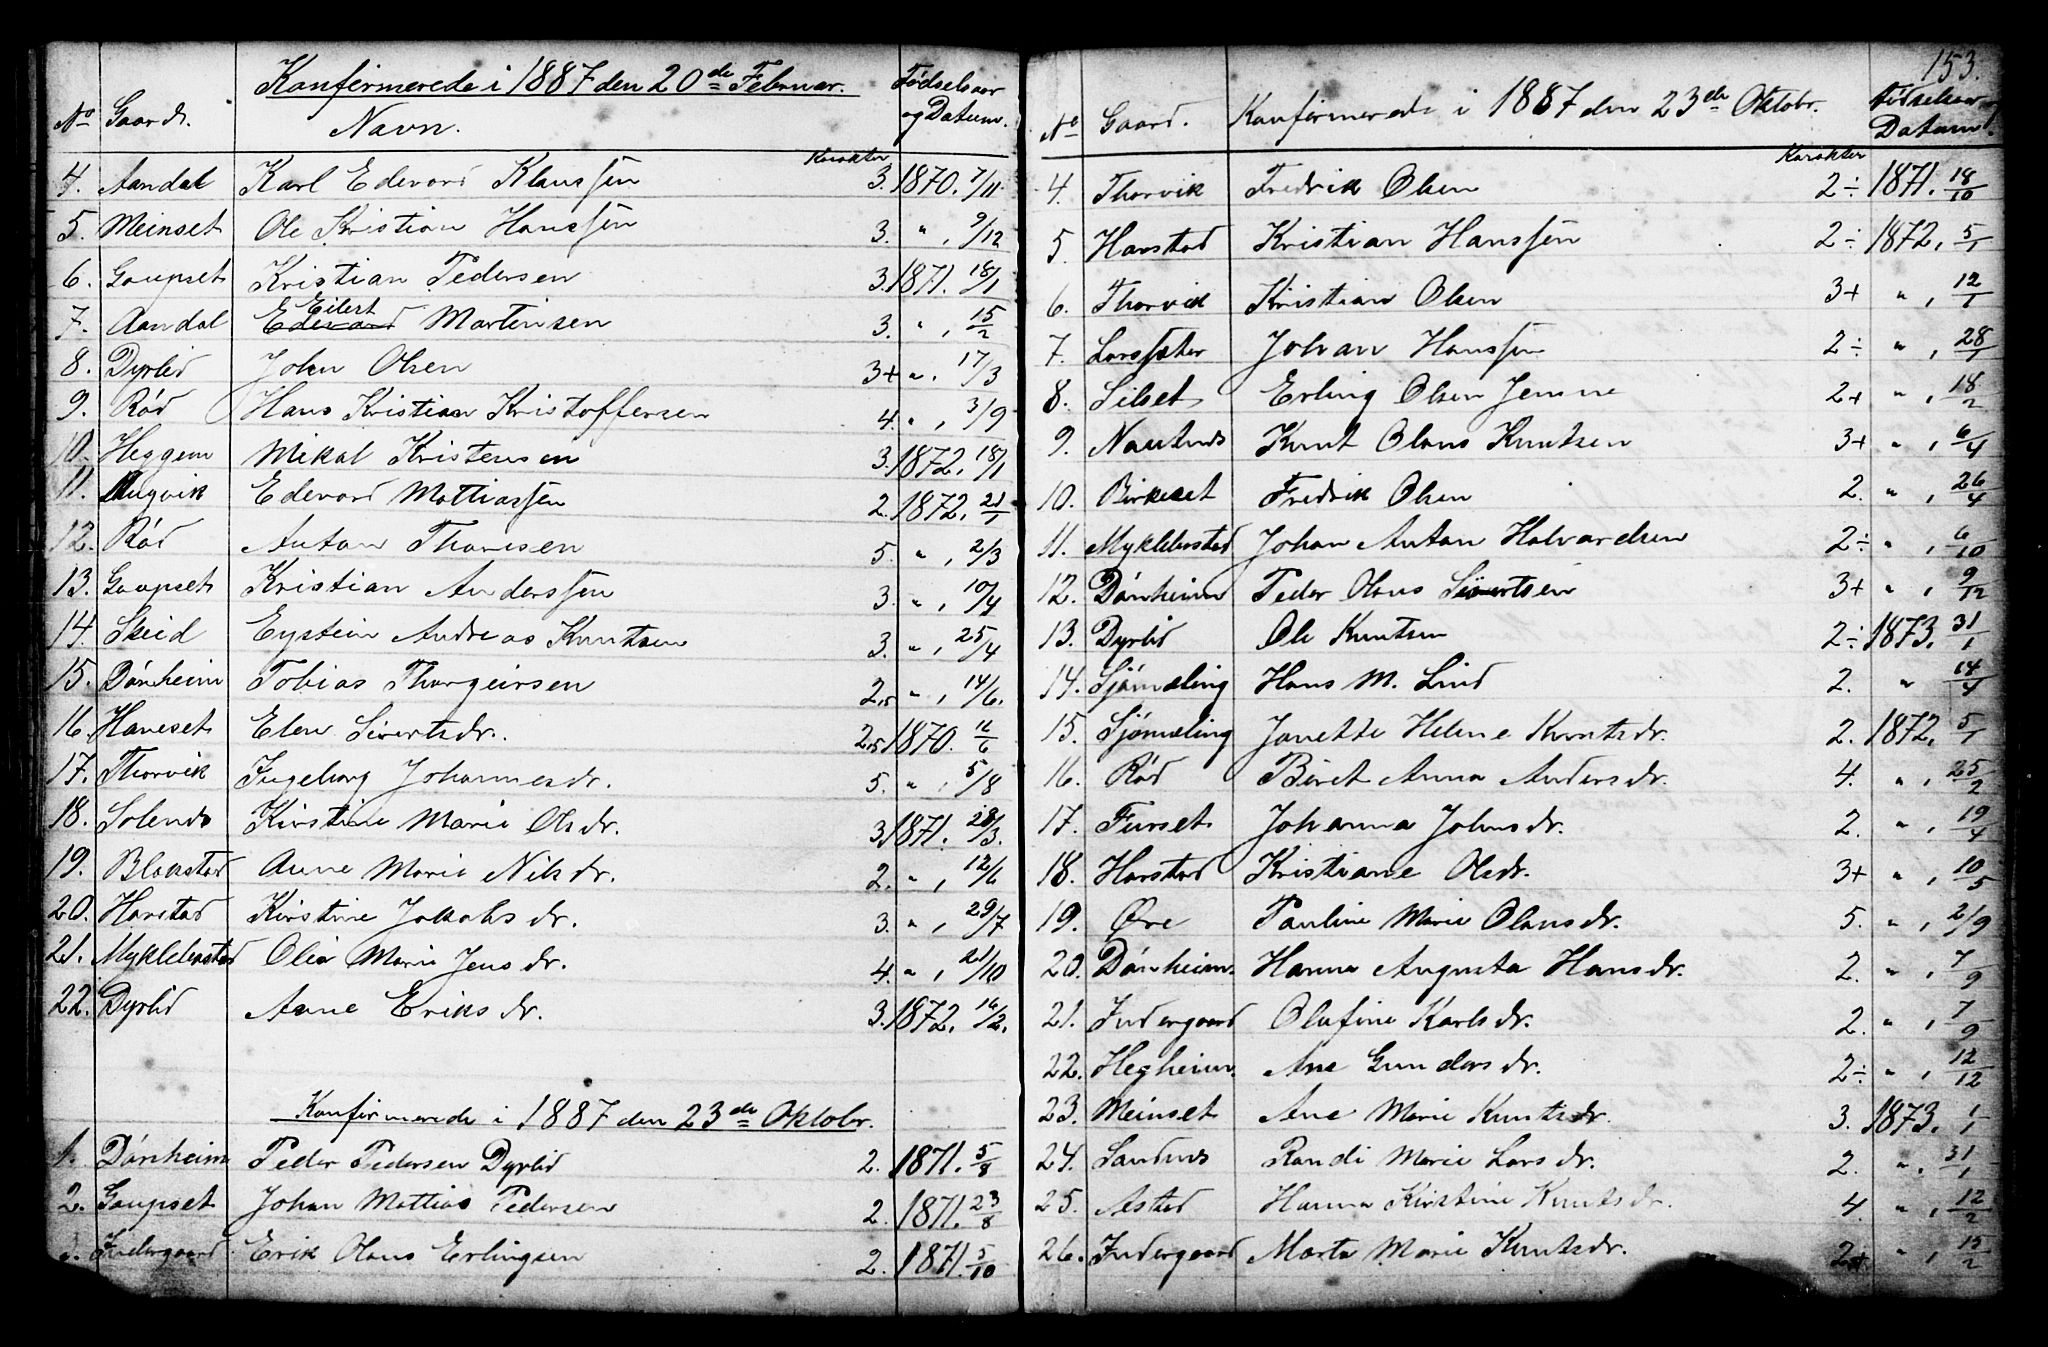 Konfirmerede i 1887 den 20de Februar.
No Gaard. Navn. Karakter Fødselsaar og Datum.
4. Aandal Karl Edevard Klaussen 3. 1870. 7/11
5. Meinset Ole Kristian Hanssen 3. " , 9/12
6. Gaupset Kristian Pedersen 3. 1871. 18/1
Eilert
7. Aandal Edevard Martinsen 3. " , 15/2
8. Dyrlid John Olsen 3+ " , 17/3
9. Rød Hans Kristian Kristoffersen 4. " , 3/9
10. Heggem Mikal Kristensen 3. 1872. 18/1
11. Angvik Edevard Mattiassen 2. 1872. 21/1
12. Rød Anton Thoresen 5. " , 2/3
13. Gaupset Kristian Anderssen 3. " , 10/4
14. Skeid Eystein Andreas Knutsen 3. " , 25/4
15. Dønheim Tobias Thorgeirsen 2,5 " , 14/6.
16. Haneset Elen Sivertsdr. 2,5 1870. 16/6
17. Thorvik Ingeborg Johannesdr. 5. " , 5/8
18. Solends Kirstine Marie Olsdr. 3 1871. 28/3.
19. Blakstad Anne Marie Nilsdr. 2. " , 12/6
20. Harstad Kirstine Jakobsdr. 3. " , 29/7
21. Myklebostad Olia Marie Jensdr. 4. " , 21/10
22. Dyrlid Anne Eriksdr. 3. 1872. 16/2.
Konfirmerede i 1887 den 23de Oktobr.
1. Dønheim Peder Pedersen Dyrlid 2. 1871. 5/8
2. Gaupset Johan Mattias Pedersen 2. 1871. 23/8
Indergaard Erik Olaus Erlingsen 2. 1871. 5/10
153.
No Gaard. Konfirmerede i 1887 den 23de Oktobr. Karakter Fødselsaar og Datum.
4. Thorvik Fredrik Olsen 2÷ 1871. 18/10
5. Harstad Kristian Hanssen 2÷ 1872. 5/1
6. Thorvik Kristian Olsen 3+ " , 12/1
7. Larssæter Johan Hanssen 2÷ " , 28/1
8. Silset Erling Olsen Jemne 2+ " , 18/2
9. Nautnes Knut Olaus Knutsen 3+ " , 6/4
10. Birkeset Fredrik Olsen 2. " , 26/4
11. Myklebostad Johan Anton Halvardsen 2÷ " , 6/10
12. Dønheim Peder Olaus Sivertsen 3+ " , 9/12
13. Dyrlid Ole Knutsen 2÷ 1873. 31/1
14. Sjømæling Hans M. Lind 2. " 14/4
15. Sjømæling Janette Helene Knutsdr. 2. 1872. 5/1
16. Rød Beret Anna Andersdr. 4. " , 25/2
17. Furset Johanna Johnsdr. 2. " , 19/4
18. Harstad Kristiane Olsdr. 3+ " , 10/5
19. Øre Pauline Marie Olausdr. 5. " , 2/9
20. Dønheim. Hanna Augusta Hansdr. 2. " , 7/9
21. Indergaard Olufine Karlsdr. 2. " , 7/9
22. Hegheim. Ane Gundersdr. 2÷ " , 12/12
23. Meinset Ane Marie Knutsdr. 3. 1873. 1/1
24. Sandnes Randi Marie Larsdr. 2. " , 31/1
25. Astad Hanna Kirstine Knutsdr. 4. " , 12/2
26. Indergaard Marta Marie Knutsdr. 2+ " , 15/2